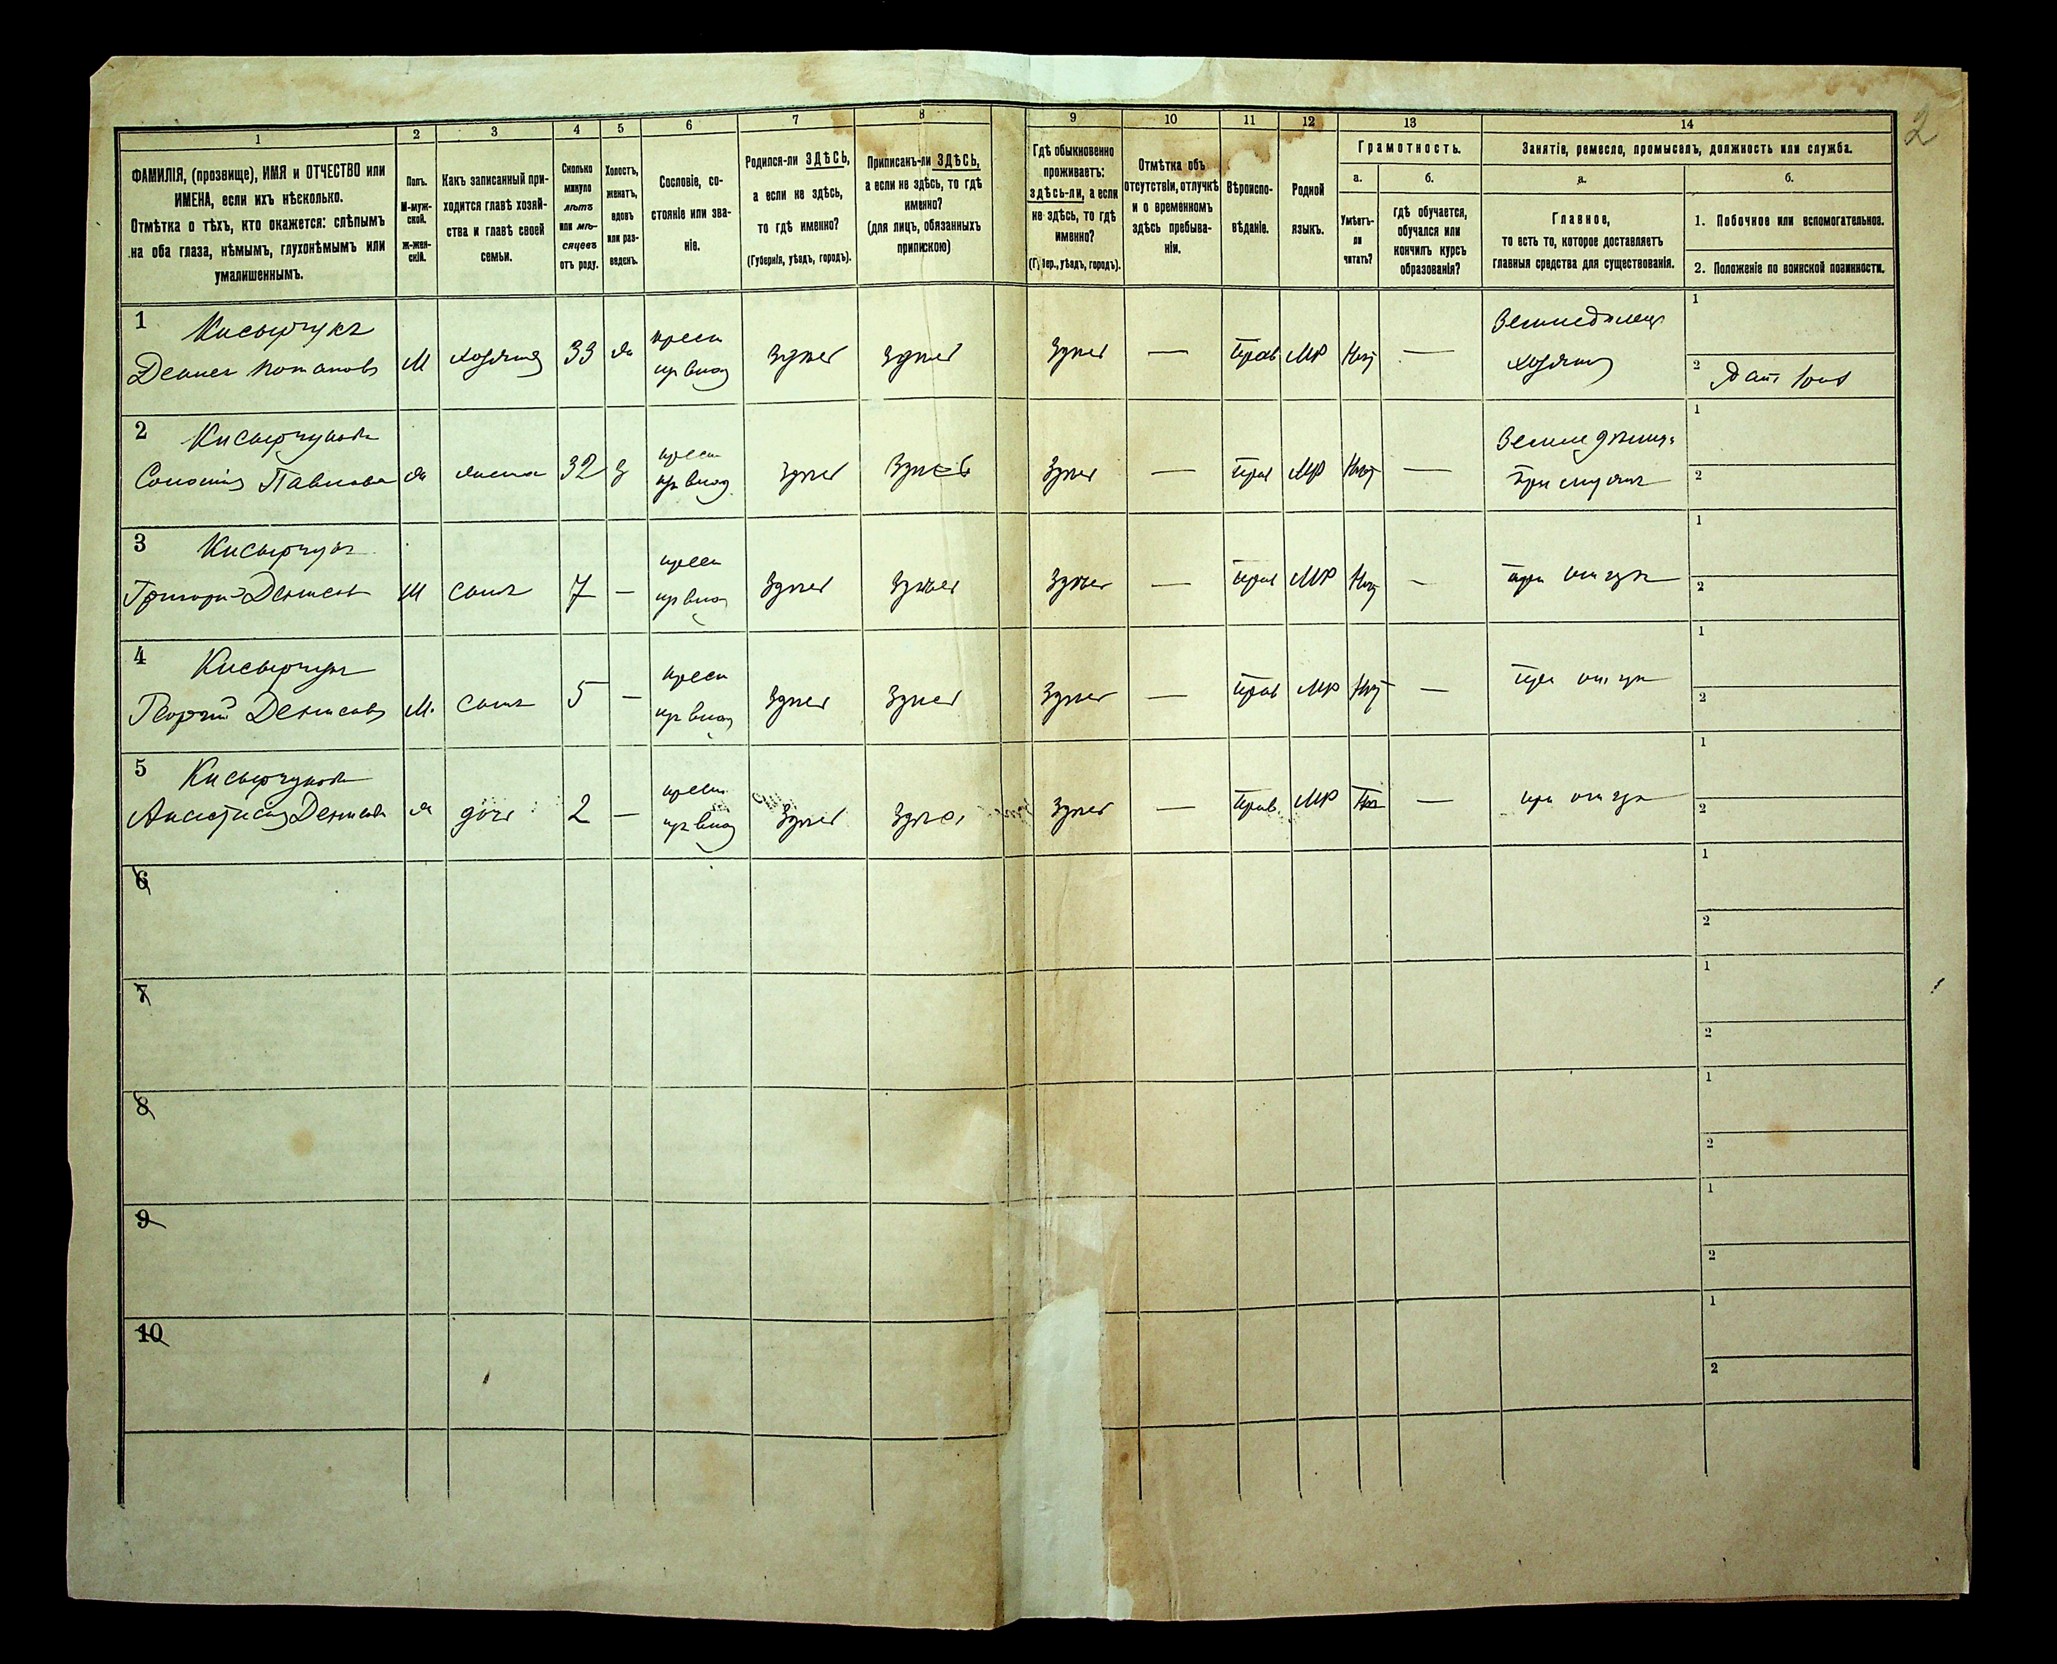 2
1 2 3 4 5 6 7 8 9 10 11 12 13 14
ФАМИЛІЯ, (прозвище), ИМЯ и ОТЧЕСТВО или
ИМЕНА, если ихъ нѣсколько.
Отмѣтка о тѣхъ, кто окажется: слѣпымъ
на оба глаза, нѣмымъ, глухонѣмымъ или
умалишеннымъ.
Полъ.
М-муж-
ской.
ж-жен-
скій.
Какъ записанный при-
ходится главѣ хозяй-
ства и главѣ своей
семьи.
Сколько
минуло
лѣтъ
или мѣ-
сяцевъ
отъ роду.
Холостъ,
женатъ,
вдовъ
или раз-
веденъ.
Сословіе, со-
стояніе или зва-
ніе.
Родился-ли ЗДѢСЬ,
а если не здѣсь,
то гдѣ именно?
(Губернія, уѣздъ, городъ).
Приписанъ-ли ЗДѢСЬ,
а если не здѣсь, то гдѣ
именно?
(для лицъ, обязанныхъ
припискою)
Гдѣ обыкновенно
проживаетъ:
здѣсь-ли, а если
не здѣсь, то гдѣ
именно?
(Губер., уѣздъ, городъ).
Отмѣтка объ
отсутствіи, отлучкѣ
и о временномъ
здѣсь пребыва-
ніи.
Вѣроиспо-
вѣданіе.
Родной
языкъ.
Грамотность.
а.
Умѣетъ-
ли
читать?
б.
гдѣ обучается,
обучался или
кончилъ курсъ
образованія?
Занятіе, ремесло, промыселъ, должность или служба.
а.
Главное,
то есть то, которое доставляетъ
главныя средства для существованія.
б.
1. Побочное или вспомогательное.
2. Положеніе по воинской повинности.
1 Кисырчукъ
Денись Потаповъ М хозяинъ 33 ж крест здѣсь здѣсь здѣсь — Прав МР Нѣтъ — Земледѣлец 1
хозяинъ 2
2 Кисырчукова
Соломія Павлова ж жена 32 з крест здѣсь здѣсь здѣсь — Прав МР Нѣтъ — 1
2
3 Кисырчукъ
Григорій Денисов М сынъ 7 — крест здѣсь здѣсь здѣсь — Прав МР Нѣтъ — при отцѣ 1
2
4 Кисырчукъ
Георгій Денисовъ М. сынъ 5 — крест здѣсь здѣсь здѣсь — Прав МР Нѣтъ — при отцѣ 1
2
5 Кисырчукова
Анастасія Денисова ж дочь 2 — крест здѣсь здѣсь здѣсь — Прав. МР — при отцѣ 1
2
6 1
2
7 1
2
8 1
2
9 1
2
10 1
2